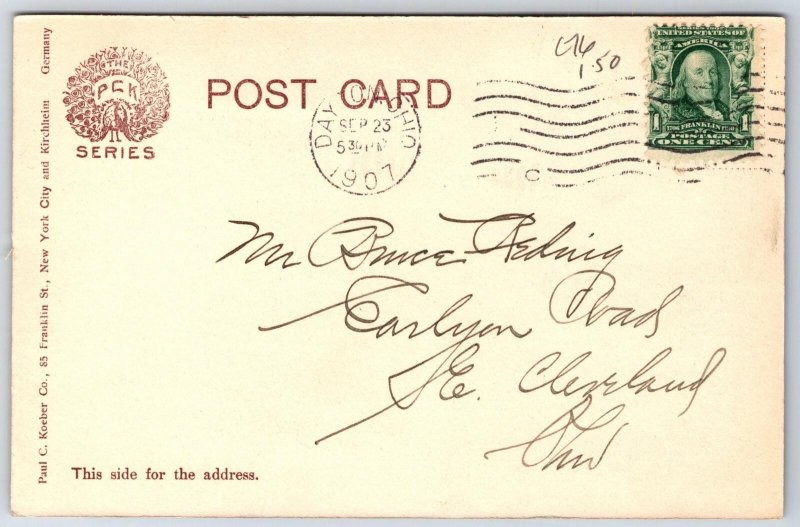 Paul C. Koeber Co., 85 Franklin St., New York City and Kirchheim Germany
THE
PCK
SERIES
POST CARD
DAYTON, OHIO
SEP 23
530 PM
1907
1.50
UNITED STATES OF
AMERICA
1706 FRANKLIN 1790
1 POSTAGE 1
ONE CENT
Mr Bruce
Carlyon Road
SE. Cleveland
Ohio
This side for the address.